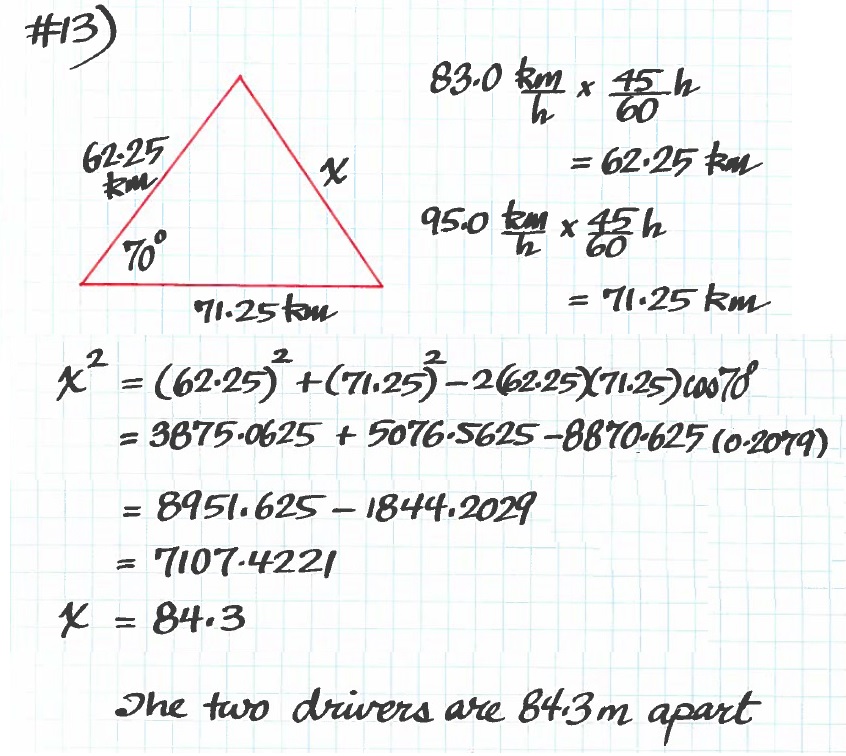 #13)
62.25
km
x
70°
71.25 km
83.0 km/h x 45/60 h
= 62.25 km
95.0 km/h x 45/60 h
= 71.25 km
x² = (62.25)² + (71.25)² - 2(62.25)(71.25)cos70°
= 3875.0625 + 5076.5625 - 8870.625 (0.2079)
= 8951.625 - 1844.2029
= 7107.4221
x = 84.3
The two drivers are 84.3m apart